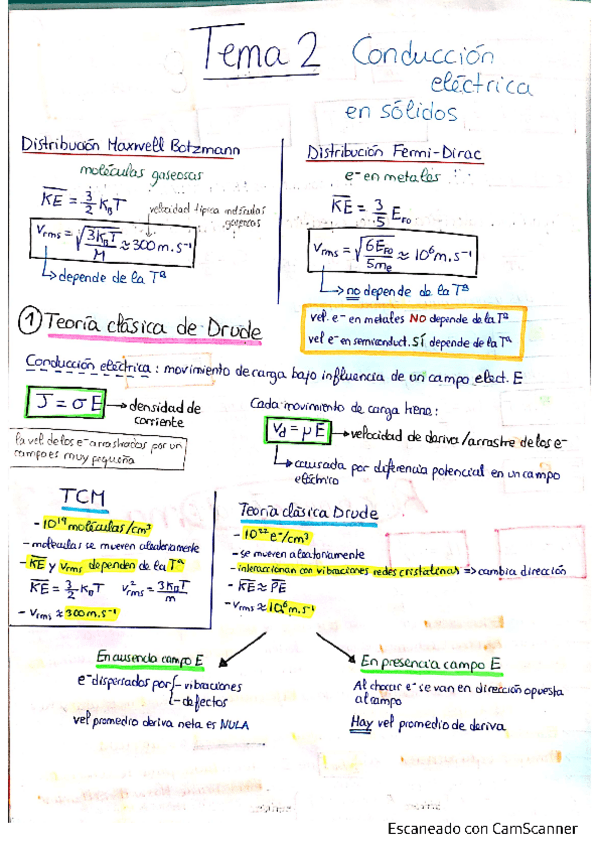 Tema 2 Conducción
eléctrica
en sólidos
Distribución Maxwell Botzmann
moléculas gaseosas
K̅E̅ = 3/2 K_B T
velocidad típica moléculas
gaseosas
V_rms = √(3K_BT/M) ≈ 300 m.s⁻¹
↳ depende de la Tª
Distribución Fermi-Dirac
e⁻ en metales
K̅E̅ = 3/5 E_FO
V_rms = √(6E_FO/5m_e) ≈ 10⁶ m.s⁻¹
↳ no depende de la Tª
vel. e⁻ en metales NO depende de la Tª
vel e⁻ en semiconduct. SÍ depende de la Tª
① Teoría clásica de Drude
Conducción eléctrica: movimiento de carga bajo influencia de un campo elect. E
J = σ E → densidad de
corriente
la vel de los e⁻ arrastrados por un
campo es muy pequeña
Cada movimiento de carga tiene:
V_d = μ E → velocidad de deriva / arrastre de los e⁻
↳ causada por diferencia potencial en un campo
eléctrico
TCM
- 10¹⁹ moléculas/cm³
- moléculas se mueven aleatoriamente
- K̅E̅ y V_rms dependen de la Tª
K̅E̅ = 3/2 K_B T V²_rms = 3K_BT/m
- V_rms ≈ 300 m.s⁻¹
Teoría clásica Drude
- 10²² e⁻/cm³
- se mueven aleatoriamente
- interaccionan con vibraciones redes cristalinas => cambia dirección
- K̅E̅ ≈ P̅E̅
- V_rms ≈ 10⁶ m.s⁻¹
En ausencia campo E
e⁻ dispersados por - vibraciones
- defectos
vel promedio deriva neta es NULA
En presencia campo E
Al chocar e⁻ se van en dirección opuesta
al campo
Hay vel promedio de deriva
Escaneado con CamScanner